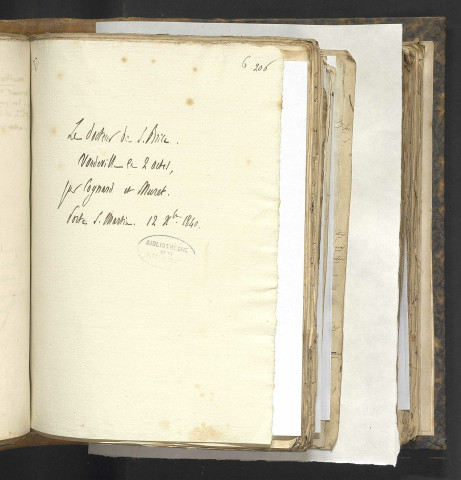 6 206
Le Docteur de S. Brice.
Vaudeville en 2 actes,
par Cognard et Muret.
Porte S. Martin. 12 Xbre 1840.
BIBLIOTHÈQUE